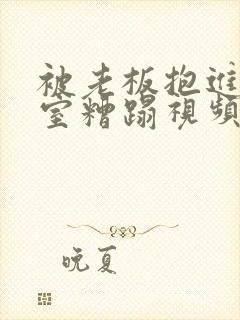 被老板抱进
室糟蹋視頻
晚夏